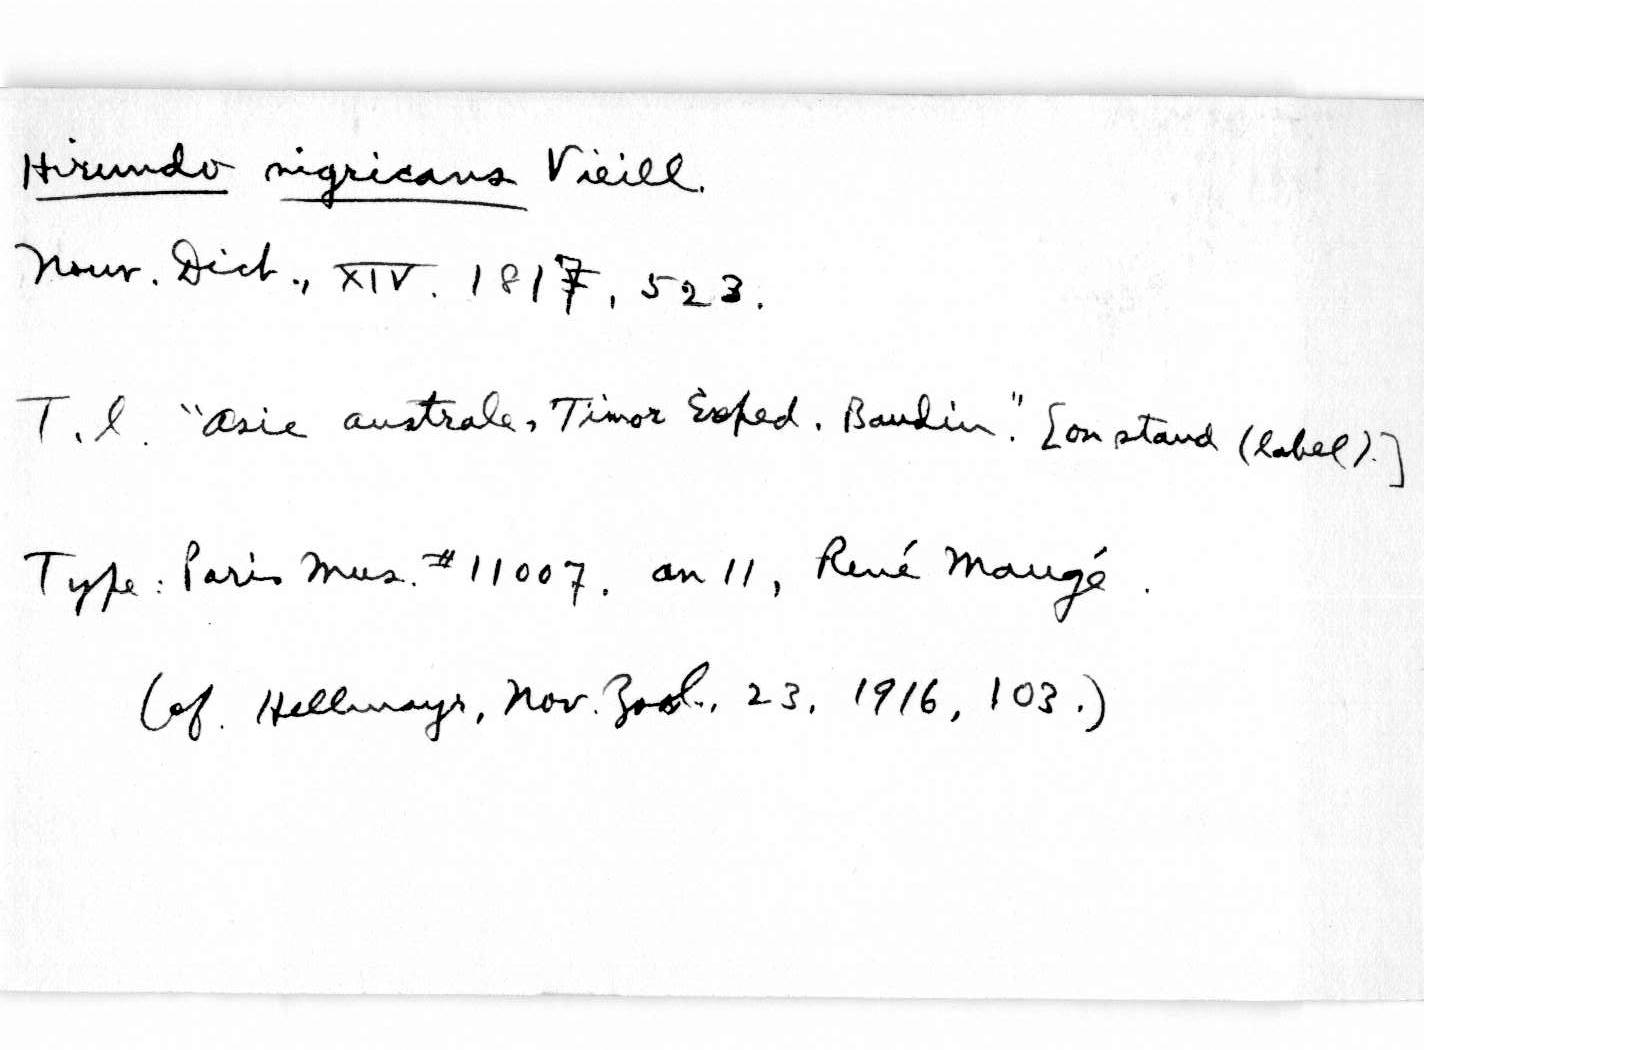 Hirundo nigricans Vieill.
Nouv. Dict., XIV. 1817, 523.
T.l. "Asie australe, Timor Exped. Baudin". [on stand (label).]
Type: Paris Mus. #11007. an 11, René Maugé.
(cf. Hellmayr, Nov. Zool., 23, 1916, 103.)